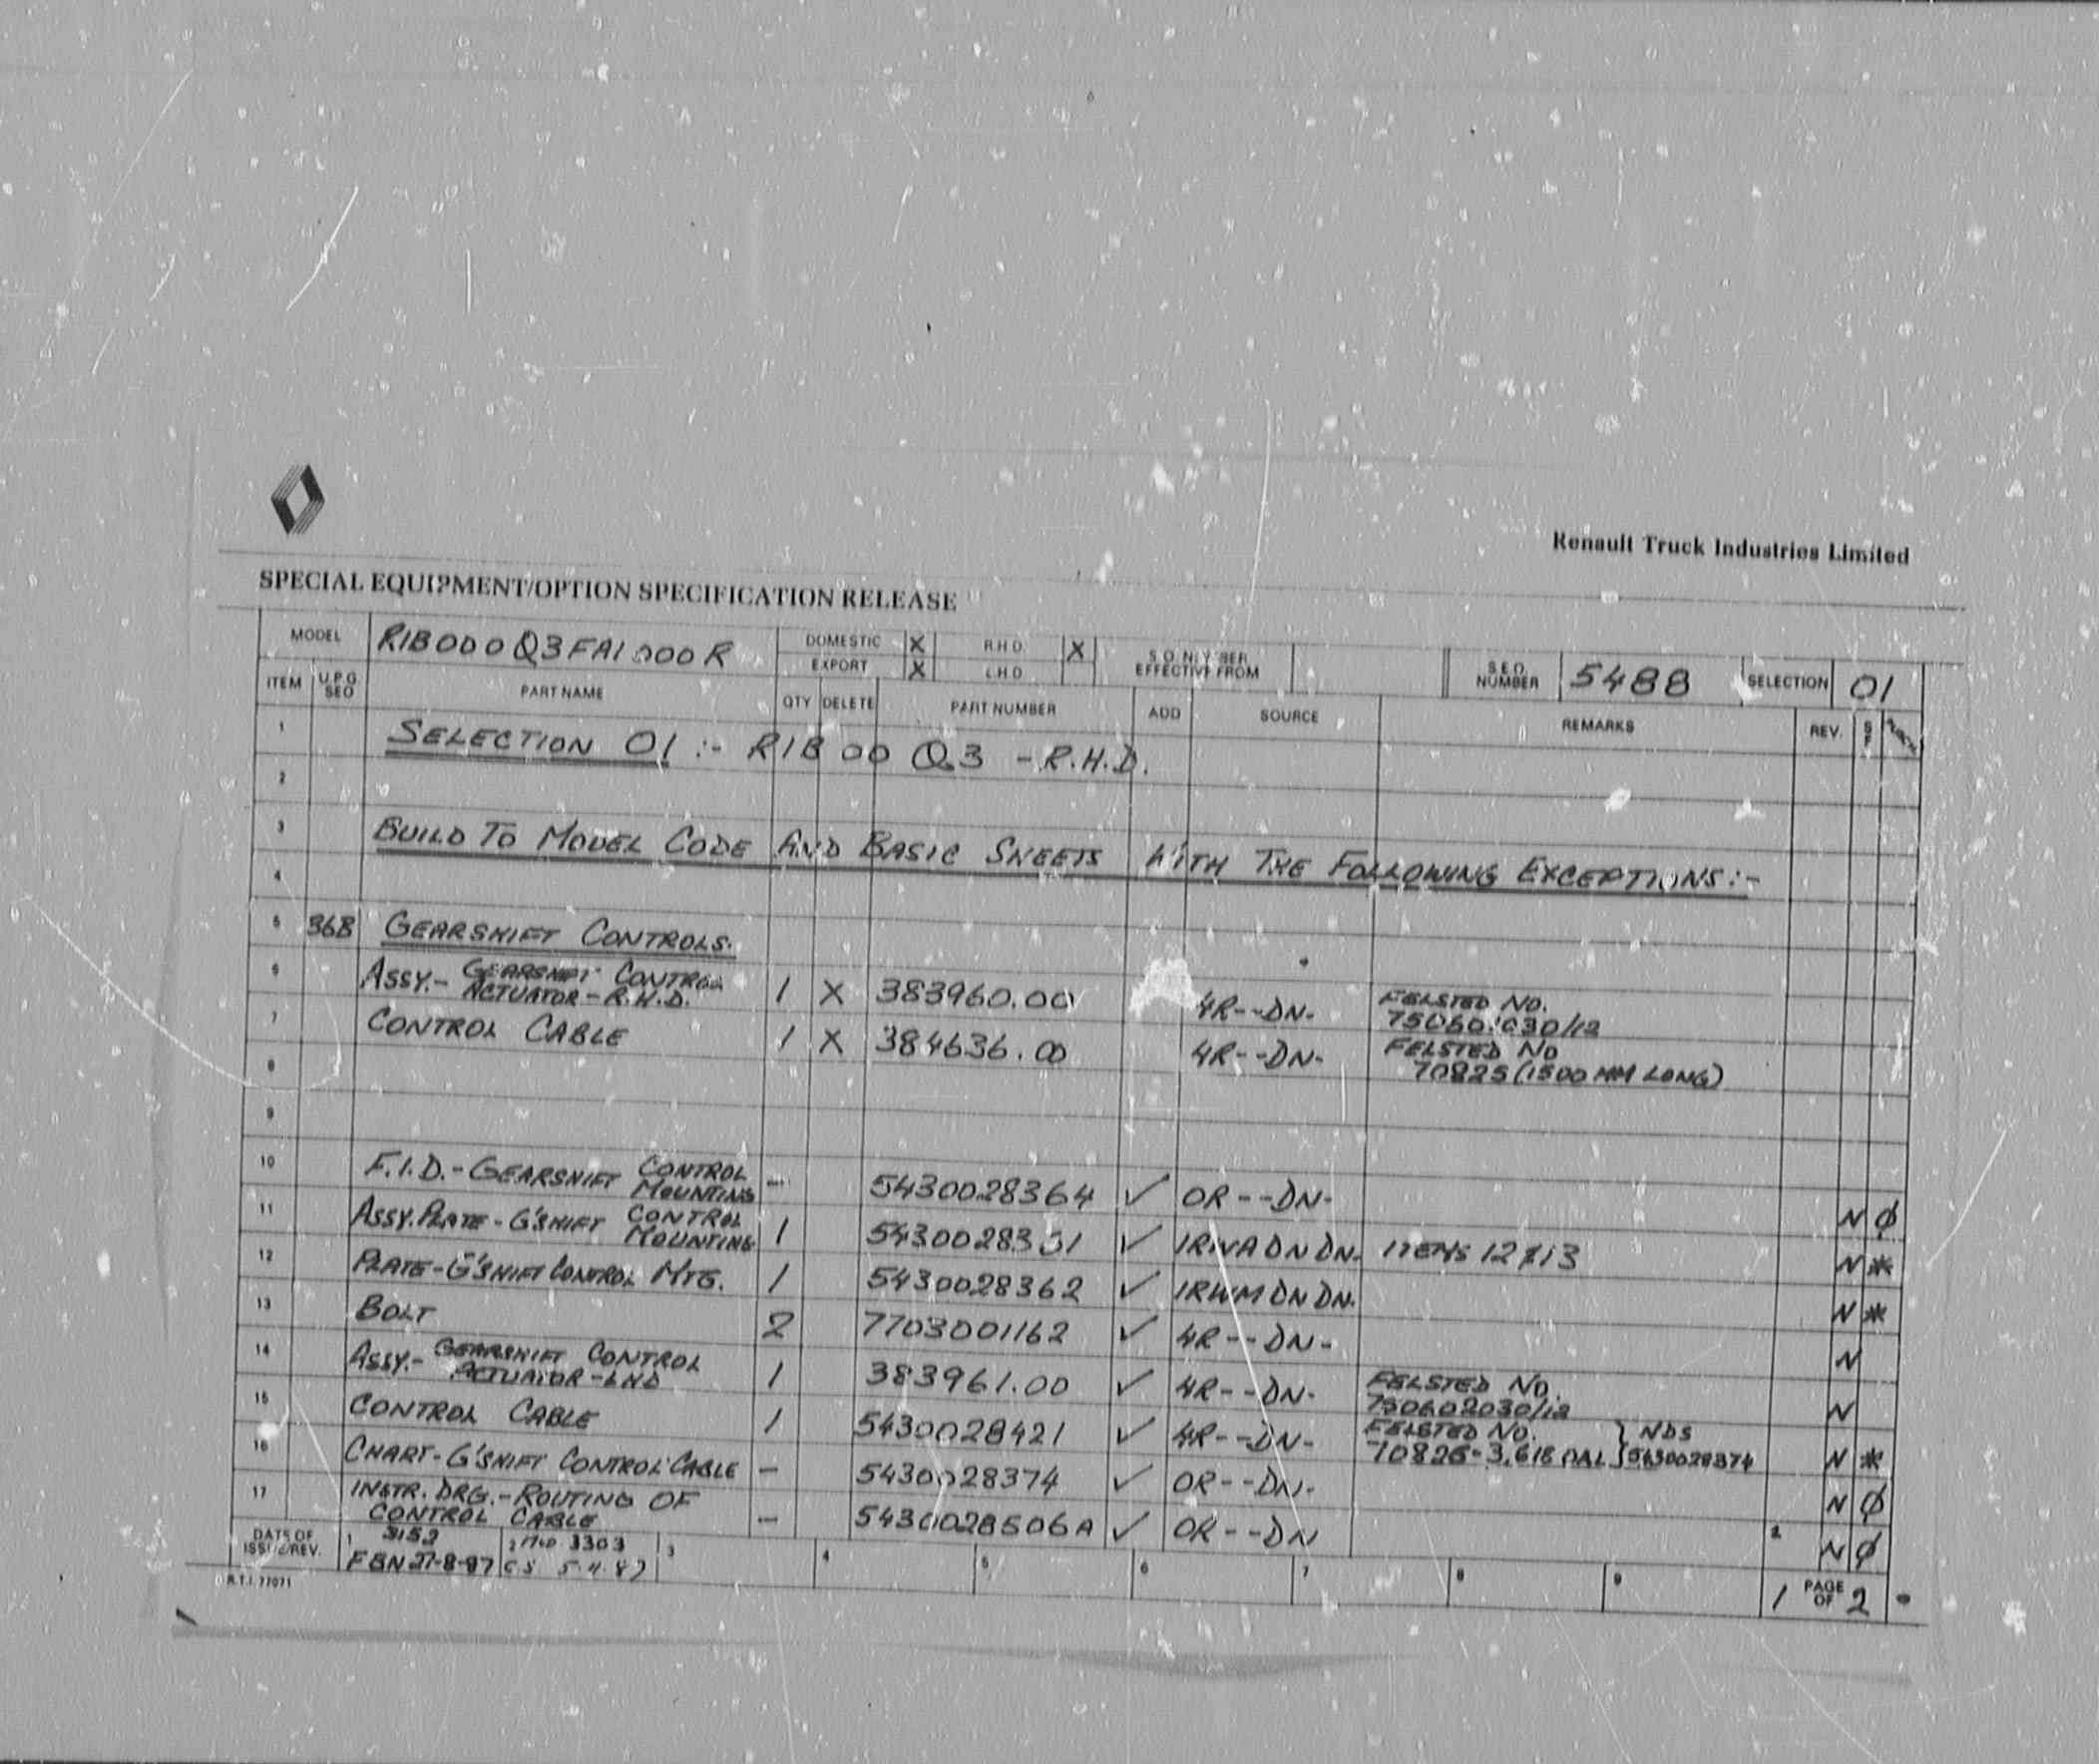 Renault Truck Industries Limited
SPECIAL EQUIPMENT/OPTION SPECIFICATION RELEASE
MODEL R1B000Q3FA1000R DOMESTIC X R H D X EFFECTIVE FROM S.E.O. NUMBER 5488 SELECTION 01
EXPORT X L H D
ITEM U.P.G. SEO PART NAME QTY DELETE PART NUMBER ADD SOURCE REMARKS REV.
1 SELECTION 01 :- R1B00Q3 - R.H.D.
2
3 BUILD TO MODEL CODE AND BASIC SHEETS WITH THE FOLLOWING EXCEPTIONS:-
4
5 368 GEARSHIFT CONTROLS.
6 ASSY.- GEARSHIFT CONTROL ACTUATOR-R.H.D. 1 X 383960.00 4R--DN- FELSTED NO.
7 CONTROL CABLE 1 X 384636.00 4R--DN- FELSTED NO
70825 (1500 MM LONG)
8
9
10 F.I.D.-GEARSHIFT CONTROL MOUNTING - 5430028364 ✓ OR--DN- N Ø
11 ASSY.PLATE-G'SHIFT CONTROL MOUNTING 1 ✓ DN DN. ITEMS 12 & 13 N *
12 PLATE-G'SHIFT CONTROL MTG. 1 5430028362 ✓ 1RWM DN DN. N *
13 BOLT 2 7703001162 ✓ 4R--DN- N
14 ASSY.- GEARSHIFT CONTROL ACTUATOR-LHD 1 383961.00 ✓ 4R--DN- FELSTED NO. 750602030/12 N
15 CONTROL CABLE 1 5430028421 ✓ 4R--DN- FELSTED NO. } NDS
} 5430028374 N *
16 CHART-G'SHIFT CONTROL CABLE - 5430028374 ✓ OR--DN- N Ø
17 INSTR. DRG.-ROUTING OF CONTROL CABLE - 5430028506A ✓ OR--DN 2 N Ø
DATE OF ISSUE/REV. 1 3152 2 3303 3 4 5 6 7 8 9 1 PAGE OF 2
FBN 27-8-87
R.T.I. 77071